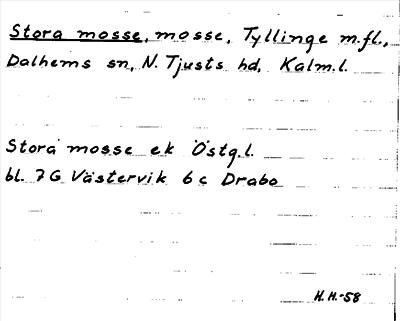 Stora mosse, mosse, Tyllinge m.fl.,
Dalhems sn, N. Tjusts hd, Kalm.l.
Stora mosse ek Östg.l.
bl. 7G Västervik 6c Drabo
H.H.-58